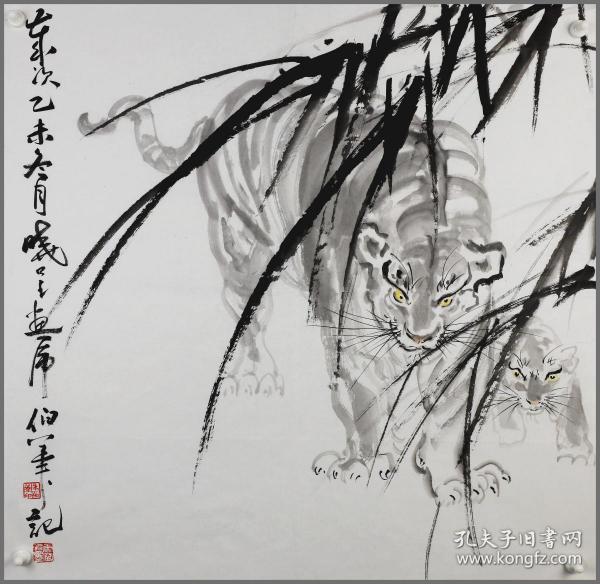 岁次乙未冬月晓星画虎伯华记
孔夫子旧书网
www.kongfz.com